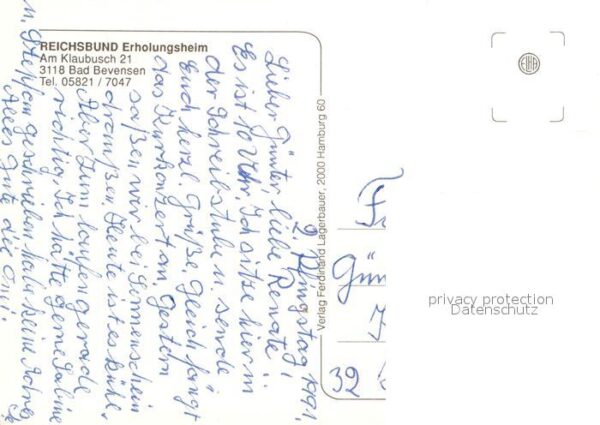 REICHSBUND Erholungsheim
Am Klaubusch 21
3118 Bad Bevensen
Tel. 05821 / 7047
2. Pfingstag 1991
Lieber Günter, liebe Renate!
Es ist 10 Uhr. Ich sitze hier in
der Schreibstube u. sende
Euch herzl. Grüße. Gleich fängt
das Kurkonzert an. Gestern
saßen wir bei Sonnenschein
draußen. Heute ist es kühl.
Aber zum laufen gerade
richtig. Ich hätte gerne Sabine
u. Stephan geschrieben hab keine Adres
Alles Gute die Omi.
Verlag Ferdinand Lagerbauer, 2000 Hamburg 60
Fa
Gün
32
privacy protection
Datenschutz